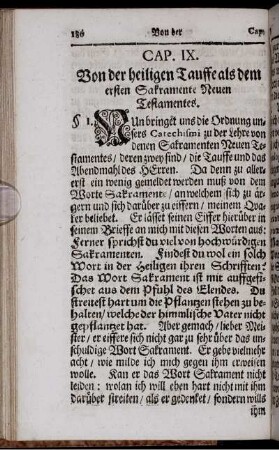 186 Von der Cap.
CAP. IX.
Von der heiligen Tauffe als dem
ersten Sakramente Neuen
Testamentes.
§ 1. NUn bringet uns die Ordnung un-
sers Catechismi zu der Lehre von
denen Sakramenten Neuen Te-
stamentes / deren zwey sind / die Tauffe und das
Abendmahl des HErren. Da denn zu aller-
erst ein wenig gemeldet werden muß von dem
Worte Sakrament / an welchem sich zu är-
gern und sich darüber zu eiffern / meinem Qva-
ker beliebet. Er lässet seinen Eiffer hierüber in
seinem Brieffe an mich mit diesen Worten aus:
Ferner sprichst du viel von hochwürdigen
Sakramenten. Findest du wol ein solch
Wort in der Heiligen ihren Schrifften?
Das Wort Sakrament ist mit auffgefi-
schet aus dem Pfuhl des Elendes. Du
streitest hart um die Pflanzen stehen zu be-
halten / welche der himmlische Vater nicht
gepflanzet hat. Aber gemach / lieber Mei-
ster / er eiffere sich nicht gar zu sehr über das un-
schuldige Wort Sakrament. Er gebe vielmehr
acht / wie milde ich mich gegen ihm erweisen
wolle. Kan er das Wort Sakrament nicht
leiden : wolan ich will eben hart nicht mit ihm
darüber streiten / als er gedenket / sondern wills
ihm